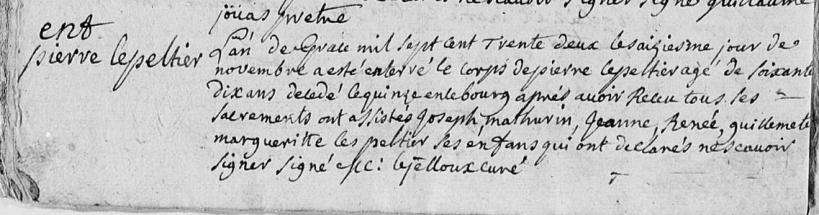 jouas pretre
ent
pierre lepeltier
L'an de Grace mil sept cent Trente deux le saiziesme jour de
novembre a esté enterré le corps de pierre lepeltier agé de soixante
dix ans decedé le quinze en le bourg aprés avoir Receu tous ses
sacrements ont assistés Joseph, mathurin, Jeanne, Renée, guillemete
margueritte les peltier ses enfans qui ont declarés ne scavoir
signer signé curé